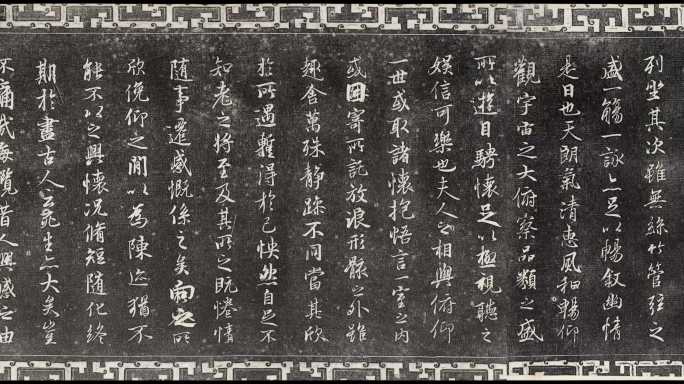 列坐其次雖無絲竹管弦之
盛一觴一詠亦足以暢叙幽情
是日也天朗氣清惠風和暢仰
觀宇宙之大俯察品類之盛
所以遊目騁懷足以極視聽之
娛信可樂也夫人之相與俯仰
一世或取諸懷抱悟言一室之內
或因寄所託放浪形骸之外雖
趣舍萬殊靜躁不同當其欣
於所遇暫得於己怏然自足不
知老之將至及其所之既惓情
隨事遷感慨係之矣向之所
欣俛仰之閒以為陳迹猶不
能不以之興懷況脩短隨化終
期於盡古人云死生亦大矣豈
不痛哉每攬昔人興感之由